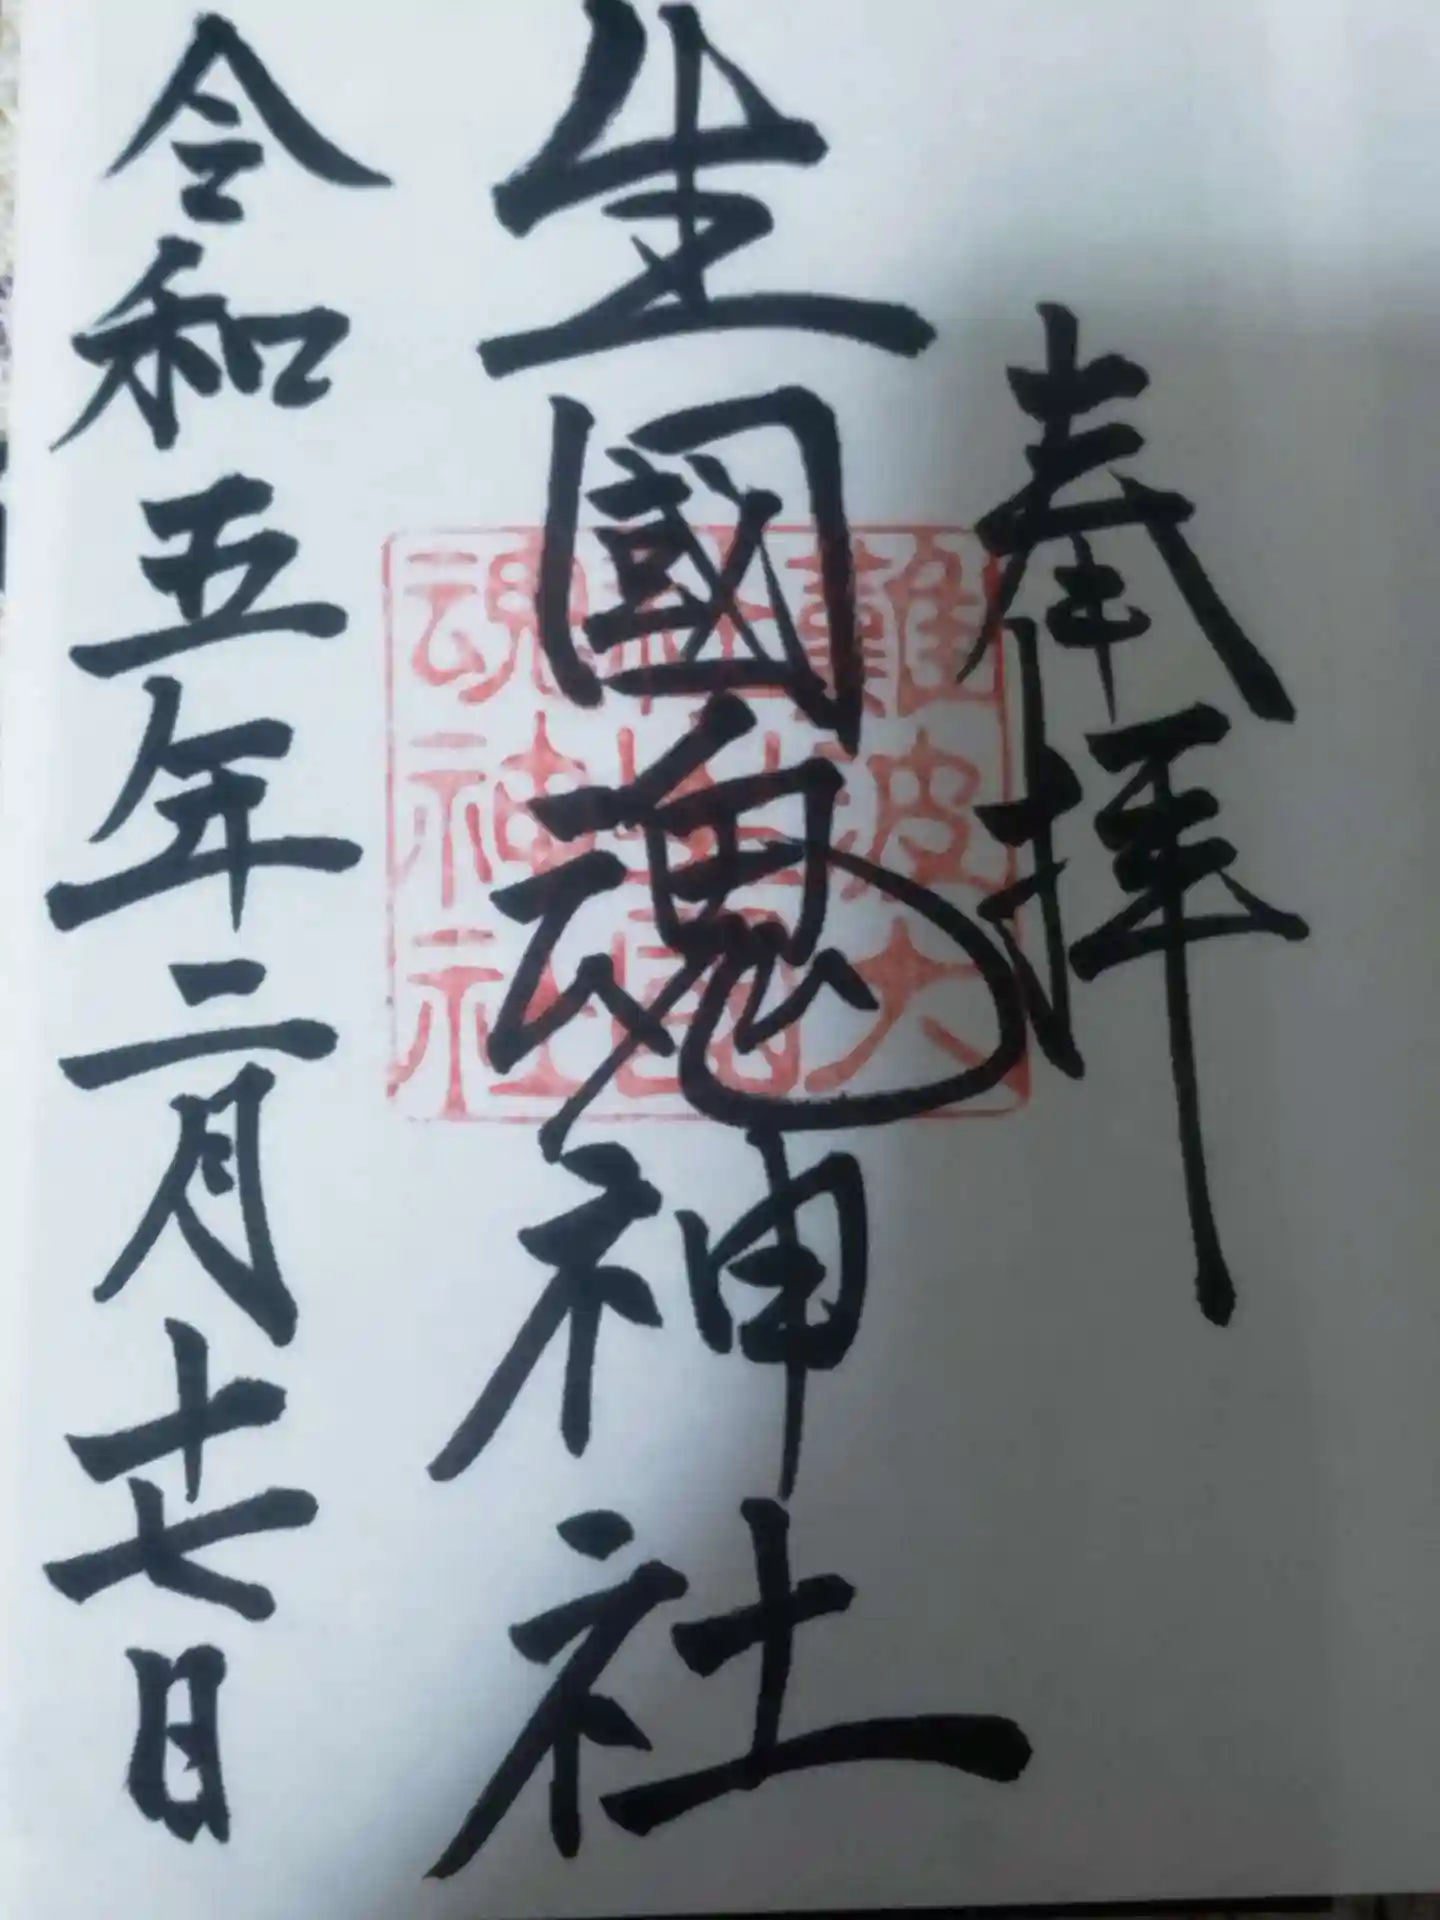 奉拝
生國魂神社
令和五年二月十七日
難波大
社生國
魂神社